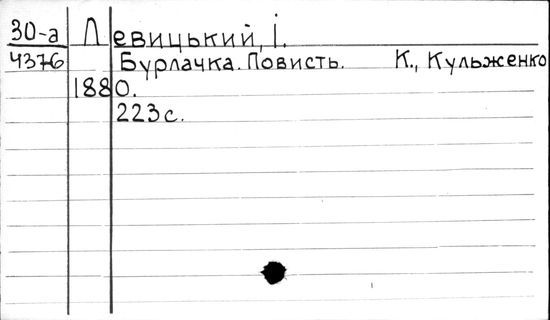 30-а Левицький, І.
4376 Бурлачка. Повисть. К., Кульженко
1880.
223 с.